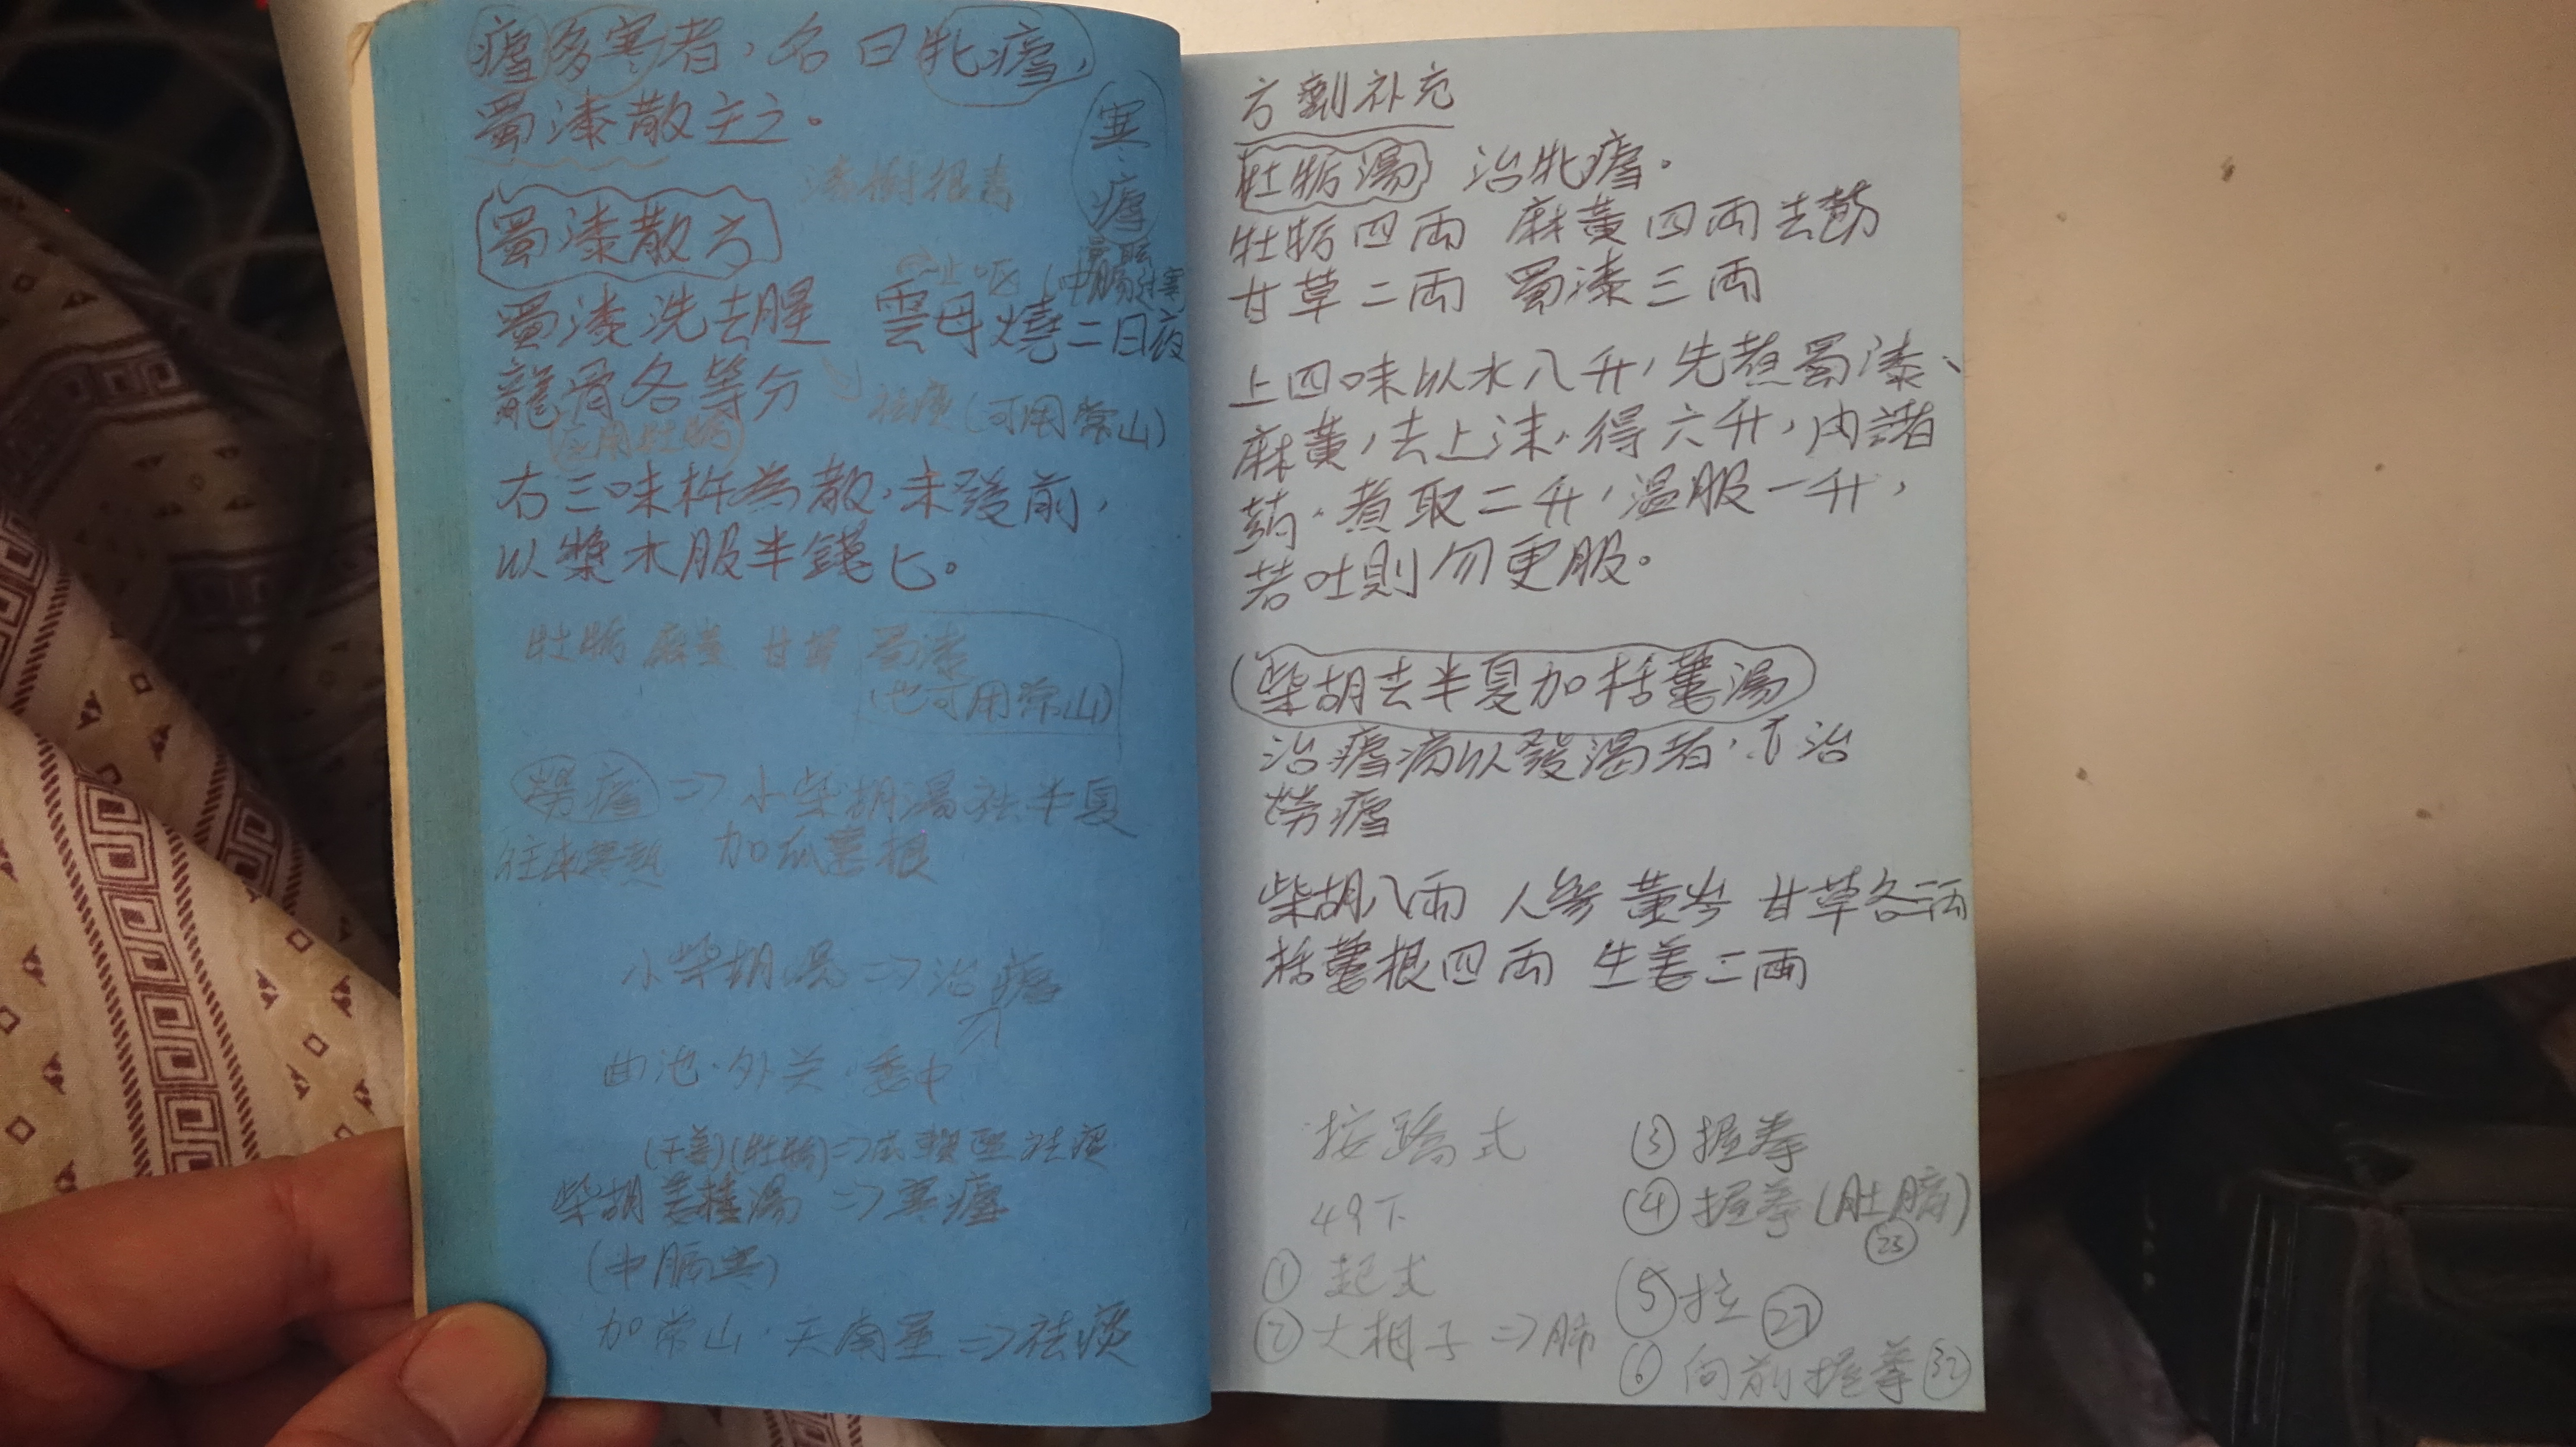 瘧多寒者，名曰牝瘧，
蜀漆散主之。
寒瘧
漆樹根
蜀漆散方
止嘔
蜀漆洗去腥 雲母燒二日夜
龍骨各等分
祛痰(可用常山)
應用牡蠣
右三味杵為散，未發前，
以漿水服半錢匕。
牡蛎 麻黃 甘草 蜀漆
(也可用常山)
勞瘧 => 小柴胡湯祛半夏
往來寒熱 加瓜蔞根
小柴胡湯 => 治瘧
曲池·外关·委中
(干姜)(牡蛎) => 祛痰
柴胡姜桂湯 => 寒瘧
(中腸寒)
加常山·天南星 => 祛痰
方劑补充
牡蛎湯 治牝瘧。
牡蛎四両 麻黃四両去節
甘草二両 蜀漆三両
上四味以水八升，先煮蜀漆、
麻黃，去上沫，得六升，内諸
药，煮取二升，温服一升，
若吐則勿更服。
柴胡去半夏加栝蔞湯
治瘧病以發渴者，亦治
勞瘧
柴胡八両 人參 黃岑 甘草各三両
栝蔞根四両 生姜二両
按蹻式
49下
① 起式
② 大栂子 => 肺
③ 握拳
④ 握拳(肚臍)
㉓
⑤ 拉 ㉗
⑥ 向前握拳 ㉜